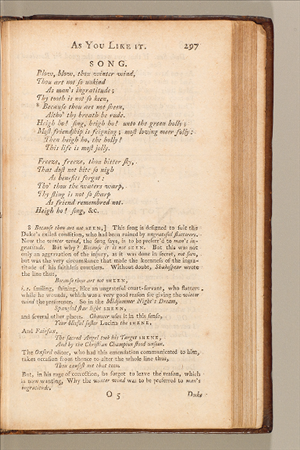 As You Like it. 297
SONG.
Blow, blow, thou winter wind,
Thou art not so unkind
As man's ingratitude;
Thy tooth is not so keen,
8 Because thou art not seen,
Altho' thy breath be rude.
Heigh ho! sing, heigh ho! unto the green holly;
Most friendship is feigning; most loving meer folly:
Then heigh ho, the holly!
This life is most jolly.
Freeze, freeze, thou bitter sky,
That dost not bite so nigh
As benefits forgot:
Tho' thou the waters warp,
Thy sting is not so sharp
As friend remembred not.
Heigh ho! sing, &c.
8 Because thou art not SEEN,] This song is designed to suit the
Duke's exiled condition, who had been ruined by ungrateful flatterers.
Now the winter wind, the song says, is to be prefer'd to man's in-
gratitude. But why? Because it is not SEEN. But this was not
only an aggravation of the injury, as it was done in secret, not seen,
but was the very circumstance that made the keenness of the ingra-
titude of his faithless courtiers. Without doubt, Shakespear wrote
the line thus,
Because thou art not SHEEN,
i.e. smiling, shining, like an ungrateful court-servant, who flatters
while he wounds, which was a very good reason for giving the winter
wind the preference. So in the Midsummer Night's Dream,
Spangled star light SHEEN,
and several other places. Chaucer uses it in this sense,
Your blissful sister Lucina the SHENE,
And Fairfax,
The sacred Angel took his Target SHENE,
And by the Christian Champion stood unseen.
The Oxford editor, who had this emendation communicated to him,
takes occasion from thence to alter the whole line thus,
Thou causest not that teen.
But, in his rage of correction, he forgot to leave the reason, which
is now wanting, Why the winter wind was to be preferred to man's
ingratitude.
O 5 Duke